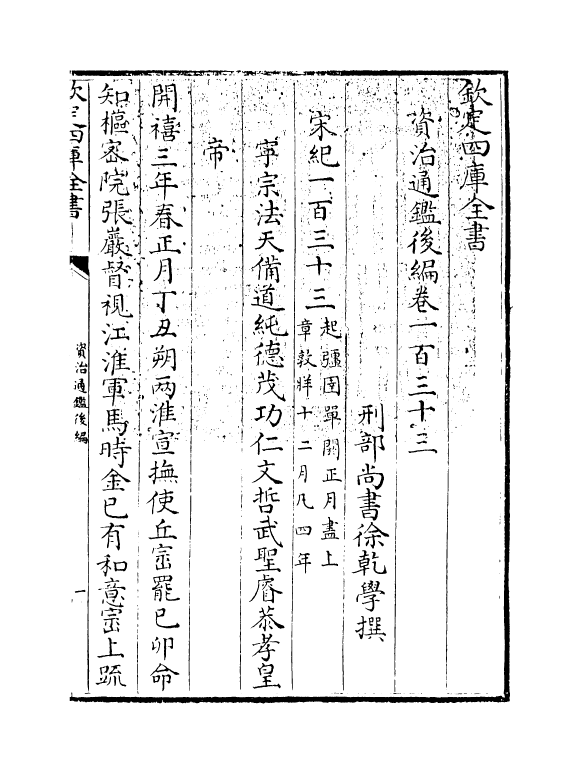 欽定四庫全書
資治通鑑後編卷一百三十三
刑部尚書徐乾學撰
宋紀一百三十三
起彊圉單閼正月盡上
章敦牂十二月凡四年
寧宗法天備道純德茂功仁文哲武聖睿恭孝皇
帝
開禧三年春正月丁丑朔两淮宣撫使丘崈罷已卯命
知樞密院張巖督視江淮軍馬時金已有和意崈上疏
欽定四庫全書
資治通鑑後編
一